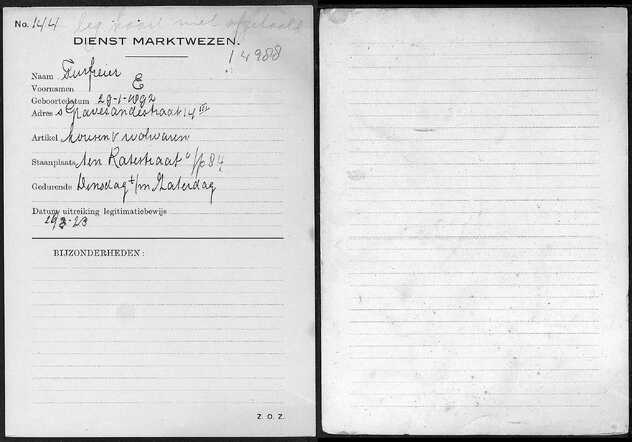 No. 144 leg kaart niet afgehaald
DIENST MARKTWEZEN.
14988
Naam Turfreier
Voornamen E
Geboortedatum 29-1-1892
Adres s Gravesandestraat 14 III
Artikel kousen & wolwaren
Staanplaats ten Katestraat 84
Gedurende Dinsdag t/m Zaterdag
Datum uitreiking legitimatiebewijs
BIJZONDERHEDEN:
Z. O. Z.